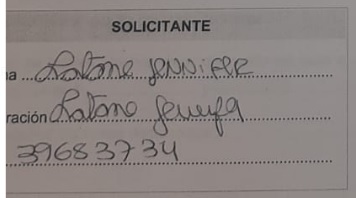 SOLICITANTE
a ... Latorre JENNIFER
ración Latorre Jennifer
39683734